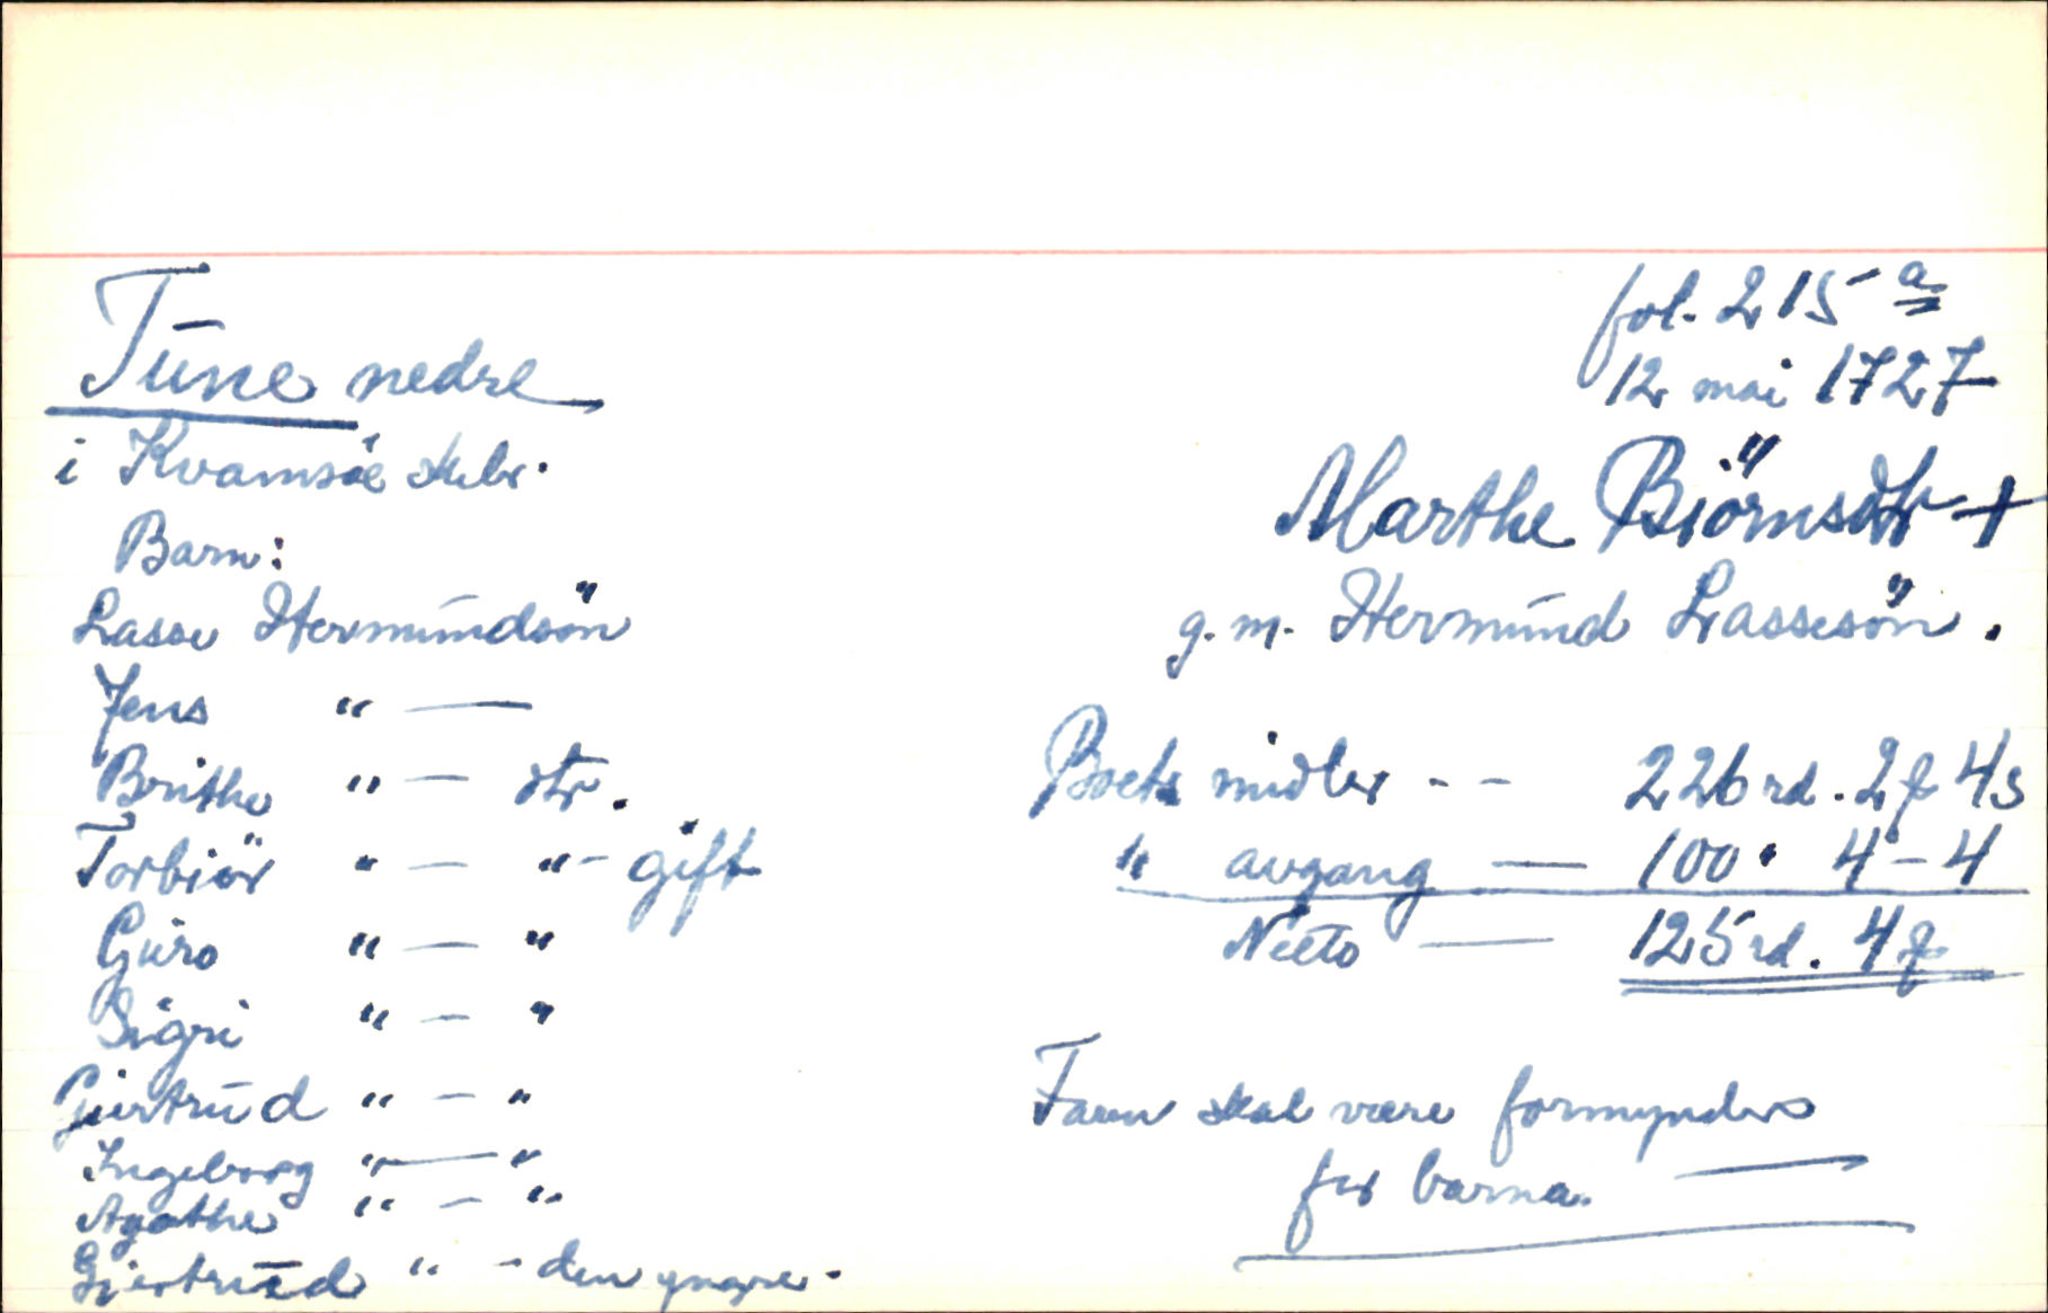 Tune nedre
i Kvamsöe skbr.
Barn:
Lasse Hermundsön
Jens " —
Brithe " — dtr.
Torbiör " — " — gift
Guro " — "
Sigri " — "
Giertrud " — "
Ingeborg " — "
Agathe " — "
Giertrud " — den yngre.
fol. 215 a
12 mai 1727
Marthe Biörnsdtr +
g. m. Hermund Lassesön.
Boets midler - - 226 rd. 2 f 4 s
" avgang — 100 " 4 - 4
Netto — 125 rd. 4 f
Faren skal være formynder
for barna. —